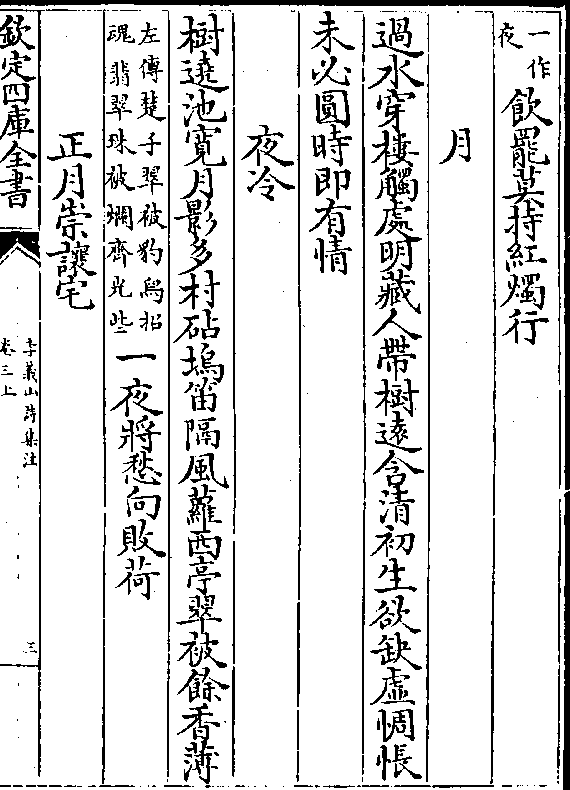 一作
夜
飲罷莫持紅燭行
月
過水穿樓觸處明藏人帶樹逺含清初生欲缺虛惆悵
未必圓時即有情
夜冷
樹遶池寛月影多村砧塢笛隔風蘿西亭翠被餘香薄
左傳楚子翠被豹舄招
魂翡翠珠被爛齊光些
一夜將愁向敗荷
正月崇讓宅
欽定四庫全書
李義山詩集注
卷三上
三